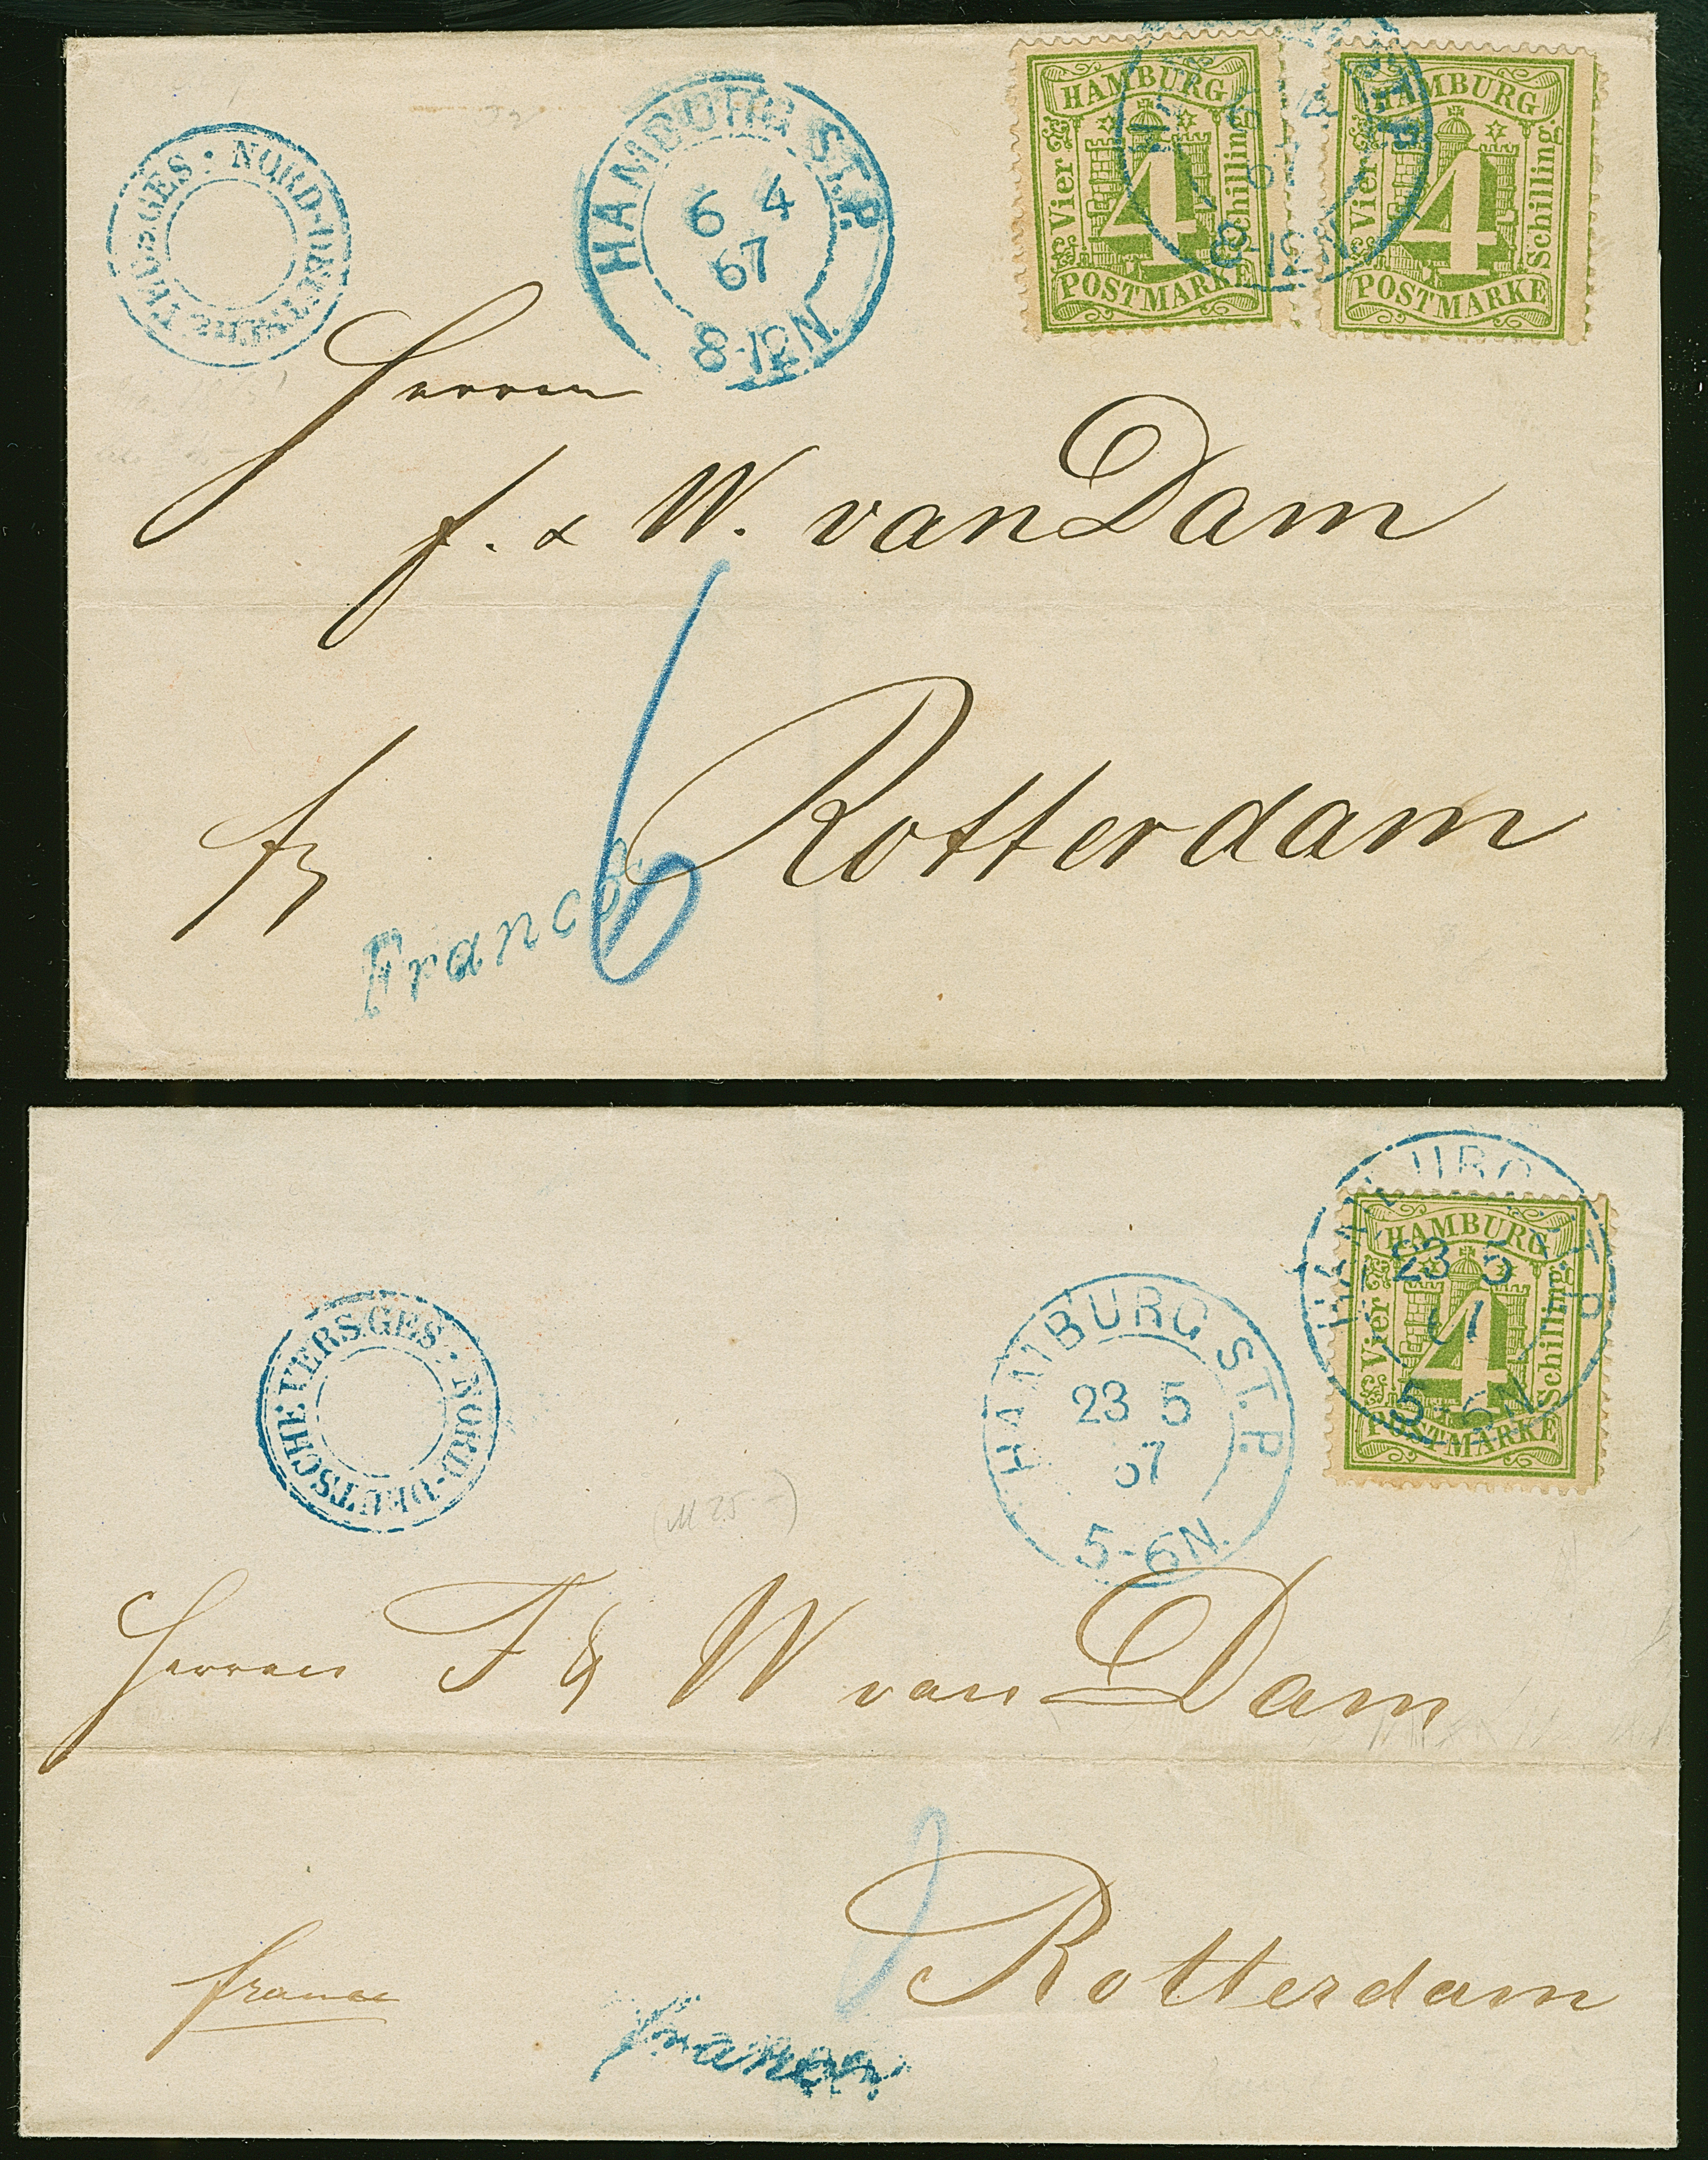 NORD-DEUTSCHE VERS. GES.
HAMBURG ST.P.
6 4
67
8-12 N.
HAMBURG
Vier
4
Schilling
POSTMARKE
HAMBURG
Vier
4
Schilling
POSTMARKE
Herren
F. & W. van Dam
Rotterdam
6
Franco
NORD-DEUTSCHE VERS. GES.
HAMBURG ST.P.
23 5
67
5-6 N.
HAMBURG ST.P.
23 5
67
5-6 N.
HAMBURG
Vier
4
Schilling
POSTMARKE
Herren F & W van Dam
Rotterdam
franco
franco